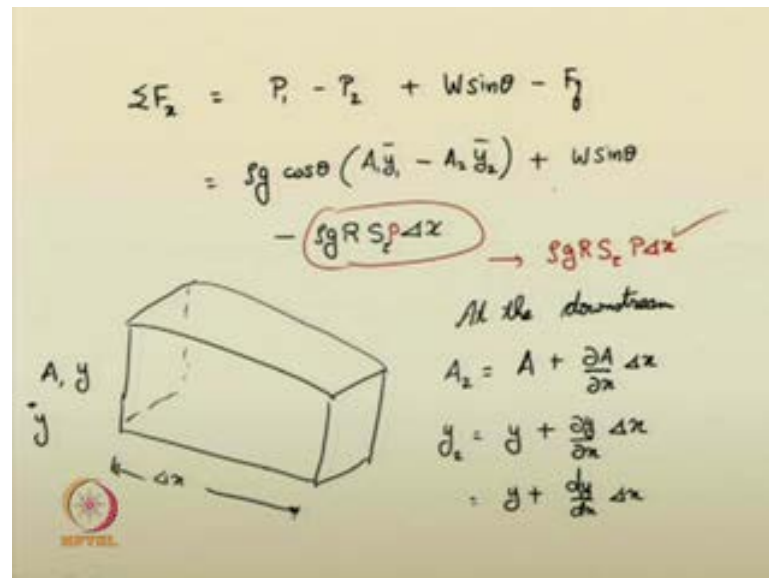 ΣFₓ = P₁ - P₂ + W sinθ - F_f
= ρg cosθ (A₁ȳ₁ - A₂ȳ₂) + W sinθ
- ρgR Sₑ P Δx → ρgR Sₑ P Δx ✓
At the downstream
A₂ = A + ∂A/∂x Δx
A, y
ȳ
y₂ = y + ∂y/∂x Δx
= y + dy/dx Δx
Δx
NPTEL